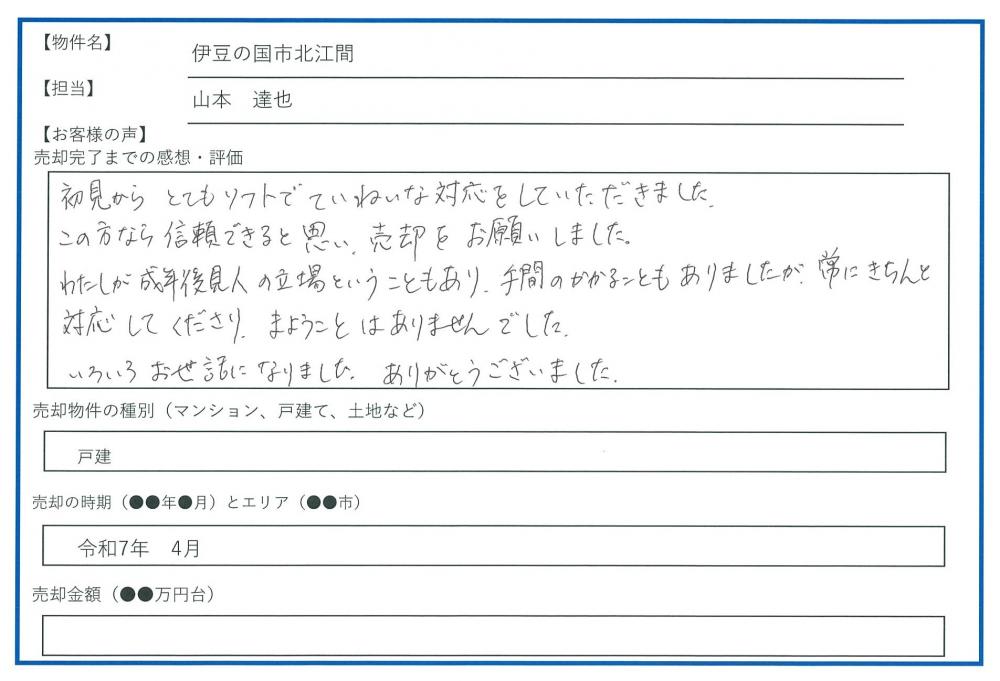 【物件名】
伊豆の国市北江間
【担当】
山本　達也
【お客様の声】
売却完了までの感想・評価
初見から とてもソフトで ていねいな対応をしていただきました。
この方なら信頼できると思い、売却をお願いしました。
わたしが成年後見人の立場ということもあり、手間のかかることもありましたが、常にきちんと
対応してくださり、まようことはありませんでした。
いろいろお世話になりました。ありがとうございました。
売却物件の種別（マンション、戸建て、土地など）
戸建
売却の時期（●●年●月）とエリア（●●市）
令和7年　4月
売却金額（●●万円台）